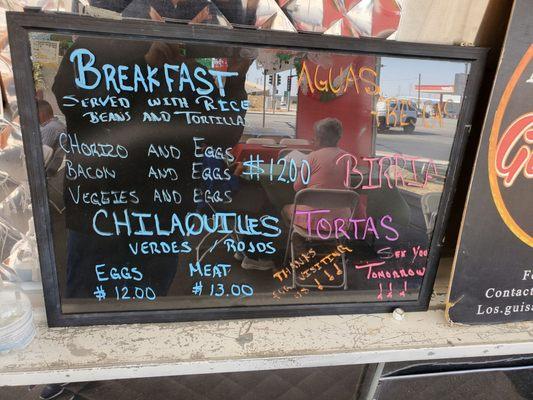 Breakfast
Served with Rice
Beans and Tortilla
Chorizo and Eggs
Bacon and Eggs $12.00
Veggies and Eggs
Chilaquiles
verdes / rojos
Eggs Meat
$12.00 $13.00
Aguas
Birria
Tortas
Thanks
for visiting
!!
See You
Tomorrow
!!!
Contact
Los.guisa